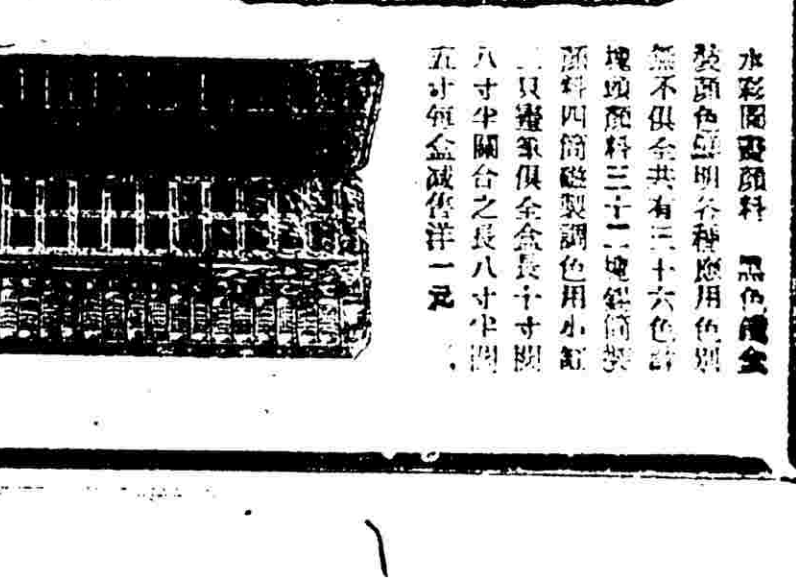 水彩圖畫顏料 黑色鐵盒
裝顏色鮮明各種應用色別
無不俱全共有三十六色計
塊頭顏料三十二塊錫筒裝
顏料四筒磁製調色用小缸
二只畫筆俱全盒長十寸闊
八寸半關合之長八寸半闊
五寸每盒減售洋一元